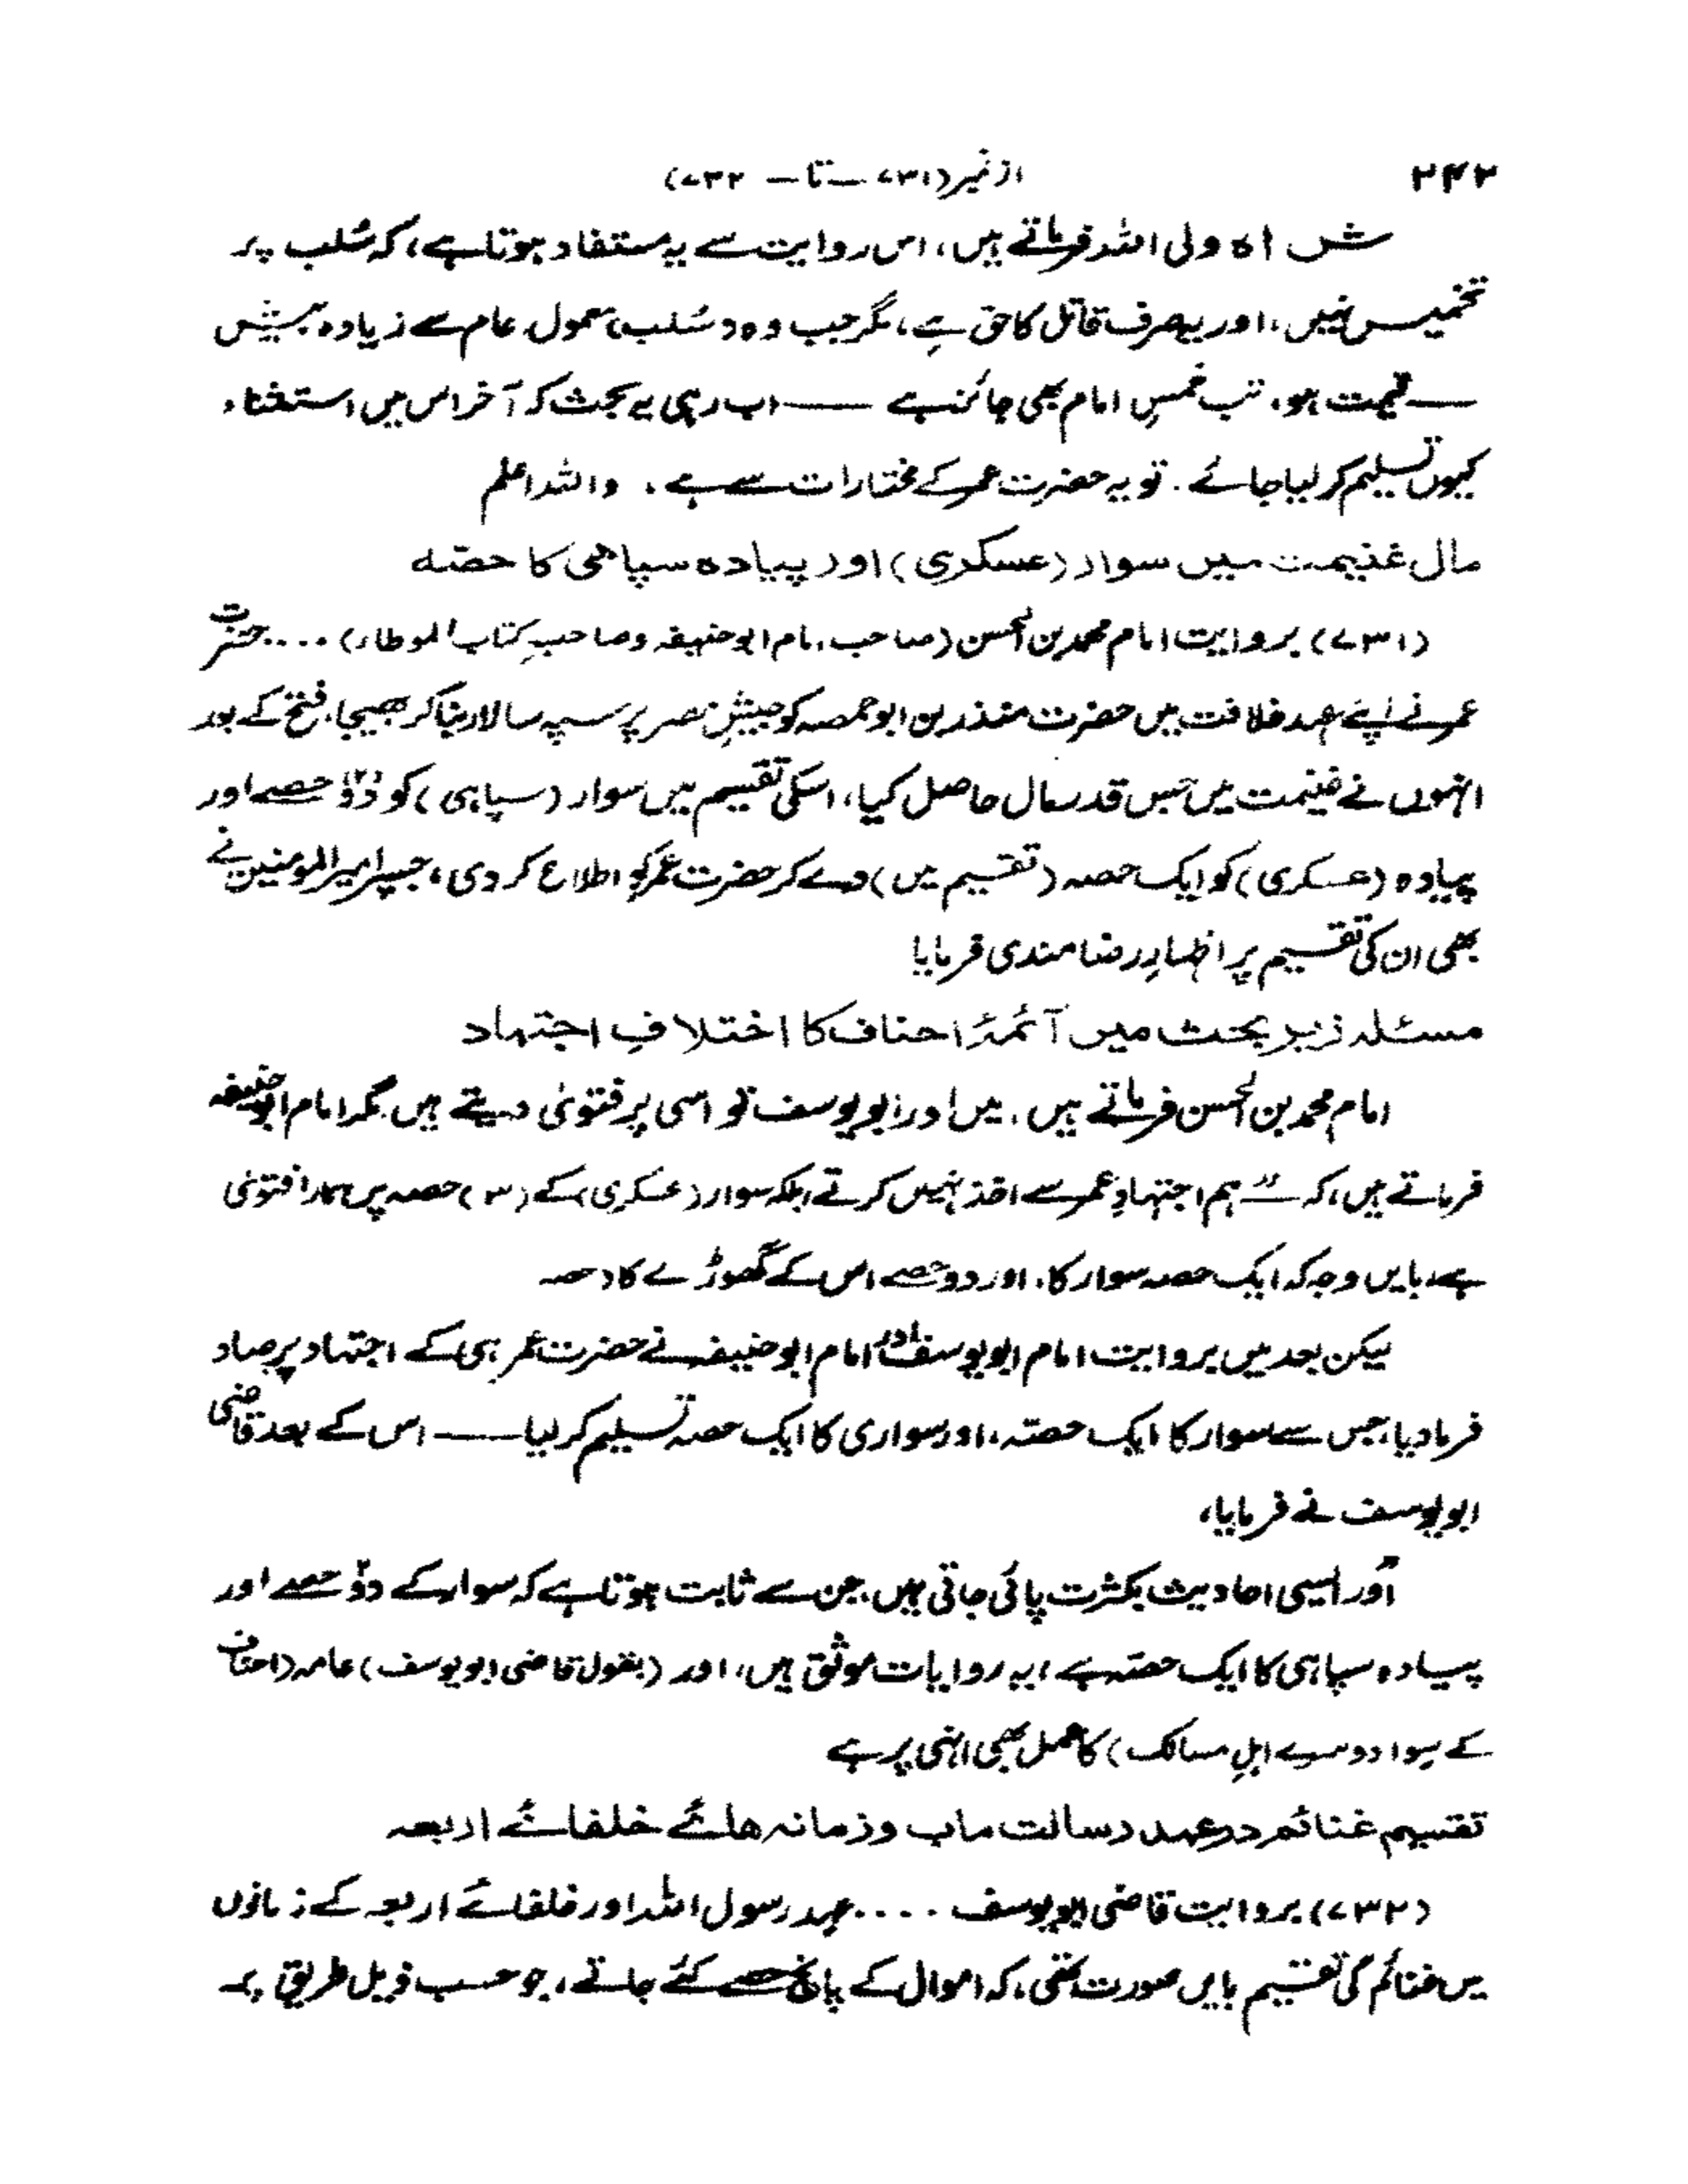 ۲۴۲ از نمبر (۷۳۱ — تا — ۷۳۲)
شاہ ولی اللہ فرماتے ہیں، اس روایت سے یہ مستفاد ہوتا ہے، کہ سُلب پر
تخمیس نہیں، اور یہ صرف قاتل کا حق ہے، مگر جب وہ (سُلب) معمول عام سے زیادہ بیش
قیمت ہو، تب خُمسِ امام بھی جائز ہے —— اب رہی یہ بحث کہ آخر اس میں استغناء
کیوں تسلیم کر لیا جائے۔ تو یہ حضرت عمر کے مختارات سے ہے، واللہ اعلم
مال غنیمت میں سوار (عسکری) اور پیادہ سپاھی کا حصّہ
(۷۳۱) بروایت امام محمد بن الحسن (صاحب امام ابو حنیفہ وصاحبِ کتاب الموطاء) .... حضرت
عمر نے اپنے عہد خلافت میں حضرت منذر بن ابو حمصہ کو جیشِ مصر پر سپہ سالار بنا کر بھیجا، فتح کے بعد
انہوں نے غنیمت میں جس قدر مال حاصل کیا، اسکی تقسیم میں سوار (سپاہی) کو دو حصے اور
پیادہ (عسکری) کو ایک حصہ (تقسیم میں) دے کر حضرت عمر کو اطلاع کر دی، جسپر امیر المومنین نے
بھی ان کی تقسیم پر اظہارِ رضامندی فرمایا
مسئلہ زیر بحث میں آئمۂ احناف کا اختلافِ اجتہاد
امام محمد بن الحسن فرماتے ہیں، میں اور ابو یوسف تو اسی پر فتویٰ دیتے ہیں مگر امام ابو حنیفہ
فرماتے ہیں، کہ — ہم اجتہادِ عمر سے اخذ نہیں کرتے، بلکہ سوار (عسکری) کے (۳) حصہ پر ہمارا فتویٰ
ہے، بایں وجہ کہ ایک حصہ سوار کا، اور دو حصے اس کے گھوڑے کا
لیکن بعد میں بروایت امام ابو یوسف اور امام ابو حنیفہ نے حضرت عمر ہی کے اجتہاد پر صاد
فرما دیا، جس سے سوار کا ایک حصّہ، اور سواری کا ایک حصہ تسلیم کر لیا —— اس کے بعد قاضی
ابو یوسف نے فرمایا،
اور ایسی احادیث بکثرت پائی جاتی ہیں، جن سے ثابت ہوتا ہے کہ سوار کے دو حصے اور
پیادہ سپاہی کا ایک حصّہ ہے، یہ روایات موثق ہیں، اور (بقول قاضی ابو یوسف) عامہ (احناف
کے سوا دوسرے اہلِ مسالک) کا عمل بھی انہی پر ہے
تقسیم غنائم در عہد رسالت ماب وزمانہ ھائے خلفائے اربعہ
(۷۳۲) بروایت قاضی ابو یوسف .... عہد رسول اللہ اور خلفائے اربعہ کے زمانوں
میں غنائم کی تقسیم بایں صورت تھی، کہ اموال کے پانچ حصے کئے جاتے، جو حسب ذیل طریق پر